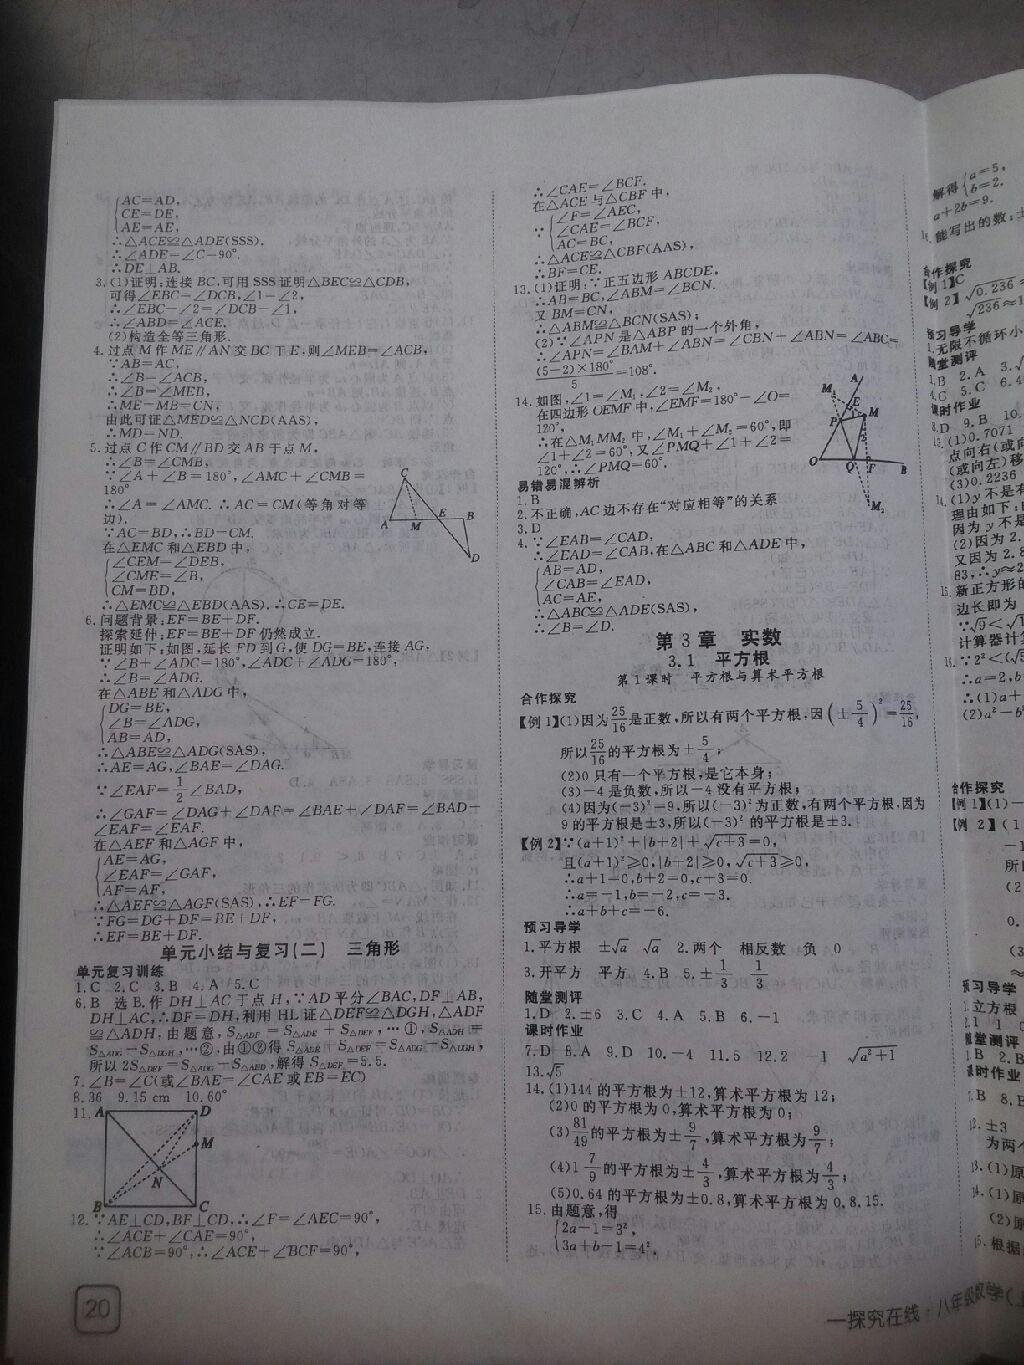 AC=AD,
CE=DE,
AE=AE,
∴△ACE≌△ADE(SSS).
∴∠ADE=∠C=90°.
∴DE⊥AB.
3.(1)证明:连接BC,可用SSS证明△BEC≌△CDB,
可得∠EBC=∠DCB,∠1=∠2,
∴∠EBC-∠2=∠DCB-∠1,
∴∠ABD=∠ACE.
(2)构造全等三角形.
4.过点M作ME∥AN交BC于E,则∠MEB=∠ACB,
∵AB=AC,
∴∠B=∠ACB,
∴∠B=∠MEB,
∴ME=MB=CN,
由此可证△MED≌△NCD(AAS),
∴MD=ND.
5.过点C作CM∥BD交AB于点M.
∴∠B=∠CMB,
∵∠A+∠B=180°,∠AMC+∠CMB=
180°
∴∠A=∠AMC.∴AC=CM(等角对等
边).
∵AC=BD,∴BD=CM.
在△EMC和△EBD中,
∠CEM=∠DEB,
∠CME=∠B,
CM=BD,
∴△EMC≌△EBD(AAS).∴CE=DE.
C
A M E B
D
6.问题背景:EF=BE+DF.
探索延伸:EF=BE+DF仍然成立.
证明如下:如图,延长FD到G,使DG=BE,连接AG,
∵∠B+∠ADC=180°,∠ADC+∠ADG=180°,
∴∠B=∠ADG.
在△ABE和△ADG中,
DG=BE,
∠B=∠ADG,
AB=AD,
∴△ABE≌△ADG(SAS),
∴AE=AG,∠BAE=∠DAG.
∵∠EAF=1/2∠BAD,
∴∠GAF=∠DAG+∠DAF=∠BAE+∠DAF=∠BAD-
∠EAF=∠EAF.
在△AEF和△AGF中,
AE=AG,
∠EAF=∠GAF,
AF=AF,
∴△AEF≌△AGF(SAS),∴EF=FG.
∵FG=DG+DF=BE+DF,
∴EF=BE+DF.
单元小结与复习(二) 三角形
单元复习训练
1.C 2.C 3.B 4.A 5.C
6.B 选B.作DH⊥AC于点H,∵AD平分∠BAC,DF⊥AB,
DH⊥AC,∴DF=DH,利用HL证△DEF≌△DGH,△ADF
≌△ADH,由题意,S△ADF=S△ADE+S△DEF,…①,S△ADH=
S△ADG-S△DGH,…②,由①②得S△ADE+S△DEF=S△ADG-S△DGH,
所以2S△DEF=S△ADG-S△AED,解得S△DEF=5.5.
7.∠B=∠C(或∠BAE=∠CAE或EB=EC)
8.36 9.15 cm 10.60°
11.
A D
M
N
B C
12.∵AE⊥CD,BF⊥CD,∴∠F=∠AEC=90°,
∴∠ACE+∠CAE=90°,
∵∠ACB=90°,∴∠ACE+∠BCF=90°,
20
∴∠CAE=∠BCF.
在△ACE与△CBF中,
∠F=∠AEC,
∵ ∠CAE=∠BCF,
AC=BC,
∴△ACE≌△CBF(AAS),
∴BF=CE.
13.(1)证明:∵正五边形ABCDE,
∴AB=BC,∠ABM=∠BCN.
又BM=CN,
∴△ABM≌△BCN(SAS);
(2)∵∠APN是△ABP的一个外角,
∴∠APN=∠BAM+∠ABN=∠CBN+∠ABN=∠ABC=
(5-2)×180°/5=108°.
14.如图,∠1=∠M₁,∠2=∠M₂,
在四边形OEMF中,∠EMF=180°-∠O=
120°,
∴在△M₁MM₂中,∠M₁+∠M₂=60°,即
∠1+∠2=60°,又∠PMQ+∠1+∠2=
120°,∴∠PMQ=60°.
A
M₁ E M
P
O Q F B
M₂
易错易混辨析
1.B
2.不正确,AC边不存在“对应相等”的关系
3.D
4.∵∠EAB=∠CAD,
∴∠EAD=∠CAB,在△ABC和△ADE中,
AB=AD,
∠CAB=∠EAD,
AC=AE,
∴△ABC≌△ADE(SAS),
∴∠B=∠D.
第3章 实数
3.1 平方根
第1课时 平方根与算术平方根
合作探究
【例1】(1)因为25/16是正数,所以有两个平方根,因(±5/4)²=25/16,
所以25/16的平方根为±5/4;
(2)0只有一个平方根,是它本身;
(3)-4是负数,所以-4没有平方根;
(4)因为(-3)²=9,所以(-3)²为正数,有两个平方根,因为
9的平方根是±3,所以(-3)²的平方根是±3.
【例2】∵(a+1)²+|b+2|+√(c+3)=0,
且(a+1)²≥0,|b+2|≥0,√(c+3)≥0,
∴a+1=0,b+2=0,c+3=0.
∴a=-1,b=-2,c=-3.
∴a+b+c=-6.
预习导学
1.平方根 ±√a √a 2.两个 相反数 负 0
3.开平方 平方 4.B 5.±1/3 1/3
随堂测评
1.D 2.±6 3.C 4.A 5.B 6.-1
课时作业
7.D 8.A 9.D 10.-4 11.5 12.2 -1 √(a²+1)
13.√5
14.(1)144的平方根为±12,算术平方根为12;
(2)0的平方根为0,算术平方根为0;
(3)81/49的平方根为±9/7,算术平方根为9/7;
(4)1 7/9的平方根为±4/3,算术平方根为4/3;
(5)0.64的平方根为±0.8,算术平方根为0.8.15.
15.由题意,得
2a-1=3²,
3a+b-1=4²,
解得 a=5,
b=2.
a+2b=9.
能写出的数:
合作探究
【例1】C
【例2】√0.236≈
√236≈1
预习导学
1.无限不循环小
随堂测评
1.B 2.A 3.
4.C 5.C 6.4
课时作业
8.D 9.B 10.
13.(1)0.7071
点向右(或向
(或向左)移
(3)0.2236
14.(1)y不是有
理由如下:
因为y不是
(2)因为2.
又因为2.8
83,∴y≈2
15.新正方形的
边长即为
∵√9<√1
计算器计
16.∵2²<(√
∴a=2,b
∴(1)a+
(2)a²-b
合作探究
【例1】(1)-
【例2】(1
-1
所以
(2
预习导学
1.立方根
随堂测评
1.B 2.B
课时作业
7.B 8.B
12.±3
为两个
13.(1)原
14.(1)原
(2)原
15.根据
—探究在线·八年级数学(上